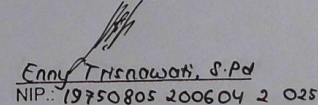 Enny Trisnowati, S.Pd
NIP.: 19750805 200604 2 025